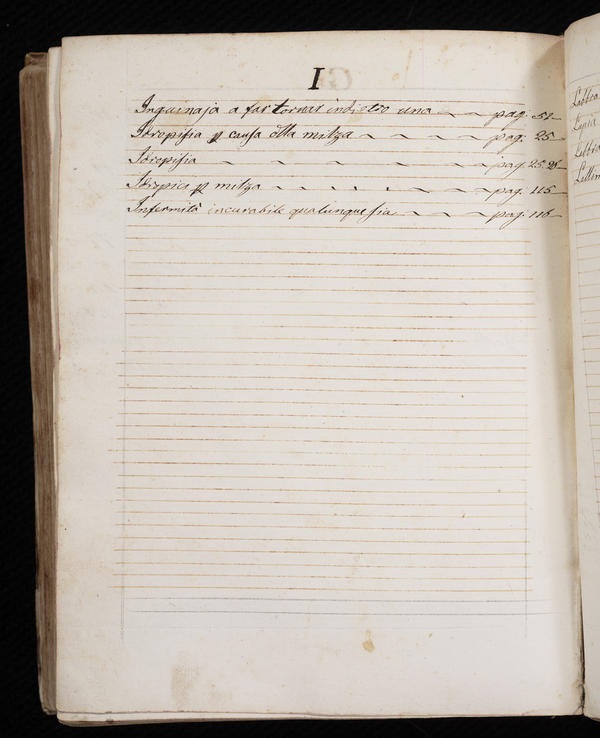 I
Inguinaja a far tornar indietro una pag. 51
Idropisia p causa dlla milza pag. 25
Idropisia pag. 25. 26
Idropici p milza pag. 115
Infermità incurabile qualunque sia pag. 116
Labbra
Labbra